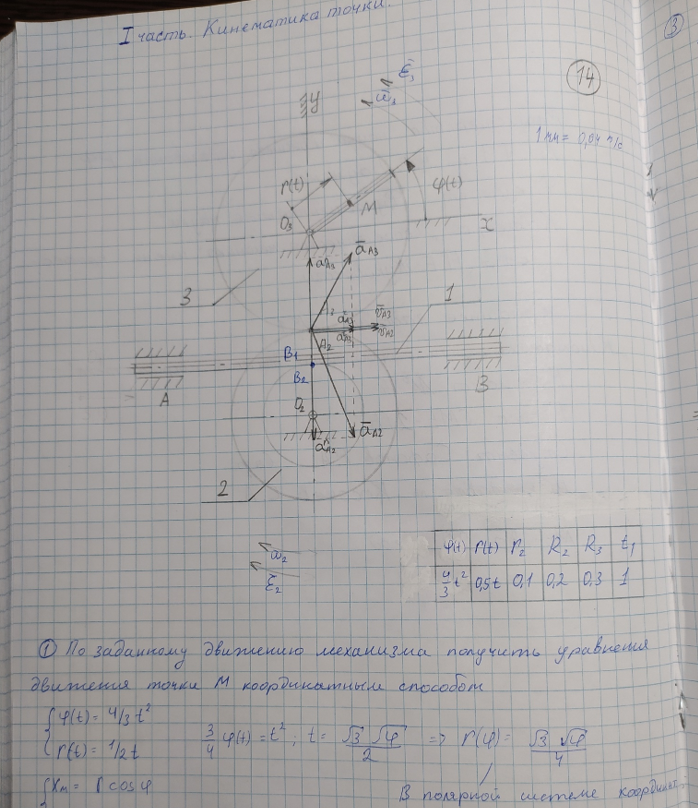 I часть. Кинематика точки.
3
14
ε̄₃
ω̄₃
y
1 мм = 0,04 м/с
r(t)
M
φ(t)
O₃
x
ā_A3
3
1
A₃
v̄_A3
v̄_A2
A₂
B₁
B₂
A
B
O₂
ā_A2
2
ω̄₂
ε̄₂
φ(t) r(t) r₂ R₂ R₃ t₁
4/3 t² 0,5t 0,1 0,2 0,3 1
① По заданному движению механизма получить уравнения
движения точки М координатным способом
{φ(t) = 4/3 t²
{r(t) = 1/2 t
3/4 φ(t) = t² ; t = √3 √φ / 2 => r(φ) = √3 √φ / 4
{Xм = r cos φ
В полярной системе координат